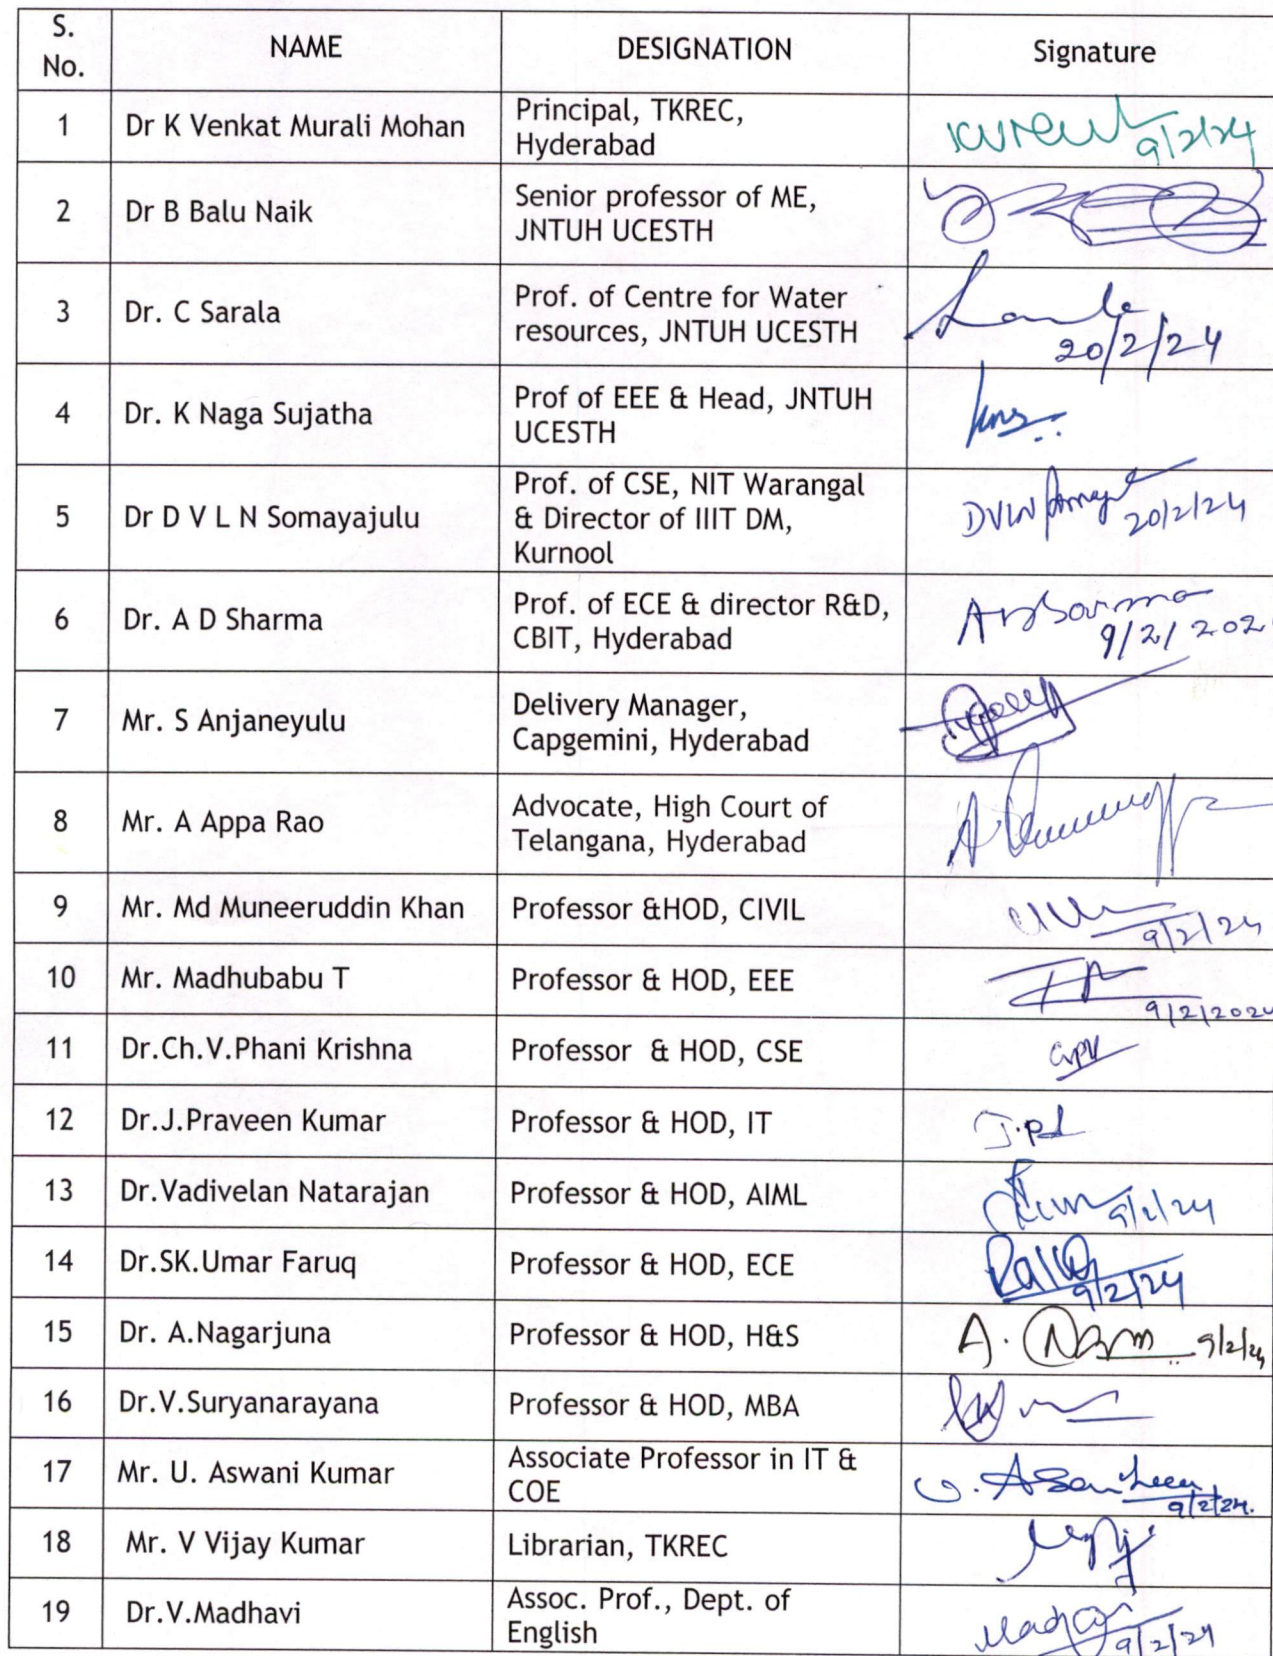 S.
No.
NAME
DESIGNATION
Signature
1
Dr K Venkat Murali Mohan
Principal, TKREC,
Hyderabad
9/2/24
2
Dr B Balu Naik
Senior professor of ME,
JNTUH UCESTH
3
Dr. C Sarala
Prof. of Centre for Water
resources, JNTUH UCESTH
20/2/24
4
Dr. K Naga Sujatha
Prof of EEE & Head, JNTUH
UCESTH
5
Dr D V L N Somayajulu
Prof. of CSE, NIT Warangal
& Director of IIIT DM,
Kurnool
20/2/24
6
Dr. A D Sharma
Prof. of ECE & director R&D,
CBIT, Hyderabad
9/2/202
7
Mr. S Anjaneyulu
Delivery Manager,
Capgemini, Hyderabad
8
Mr. A Appa Rao
Advocate, High Court of
Telangana, Hyderabad
9
Mr. Md Muneeruddin Khan
Professor &HOD, CIVIL
9/2/24
10
Mr. Madhubabu T
Professor & HOD, EEE
9/2/2024
11
Dr.Ch.V.Phani Krishna
Professor & HOD, CSE
12
Dr.J.Praveen Kumar
Professor & HOD, IT
13
Dr.Vadivelan Natarajan
Professor & HOD, AIML
9/2/24
14
Dr.SK.Umar Faruq
Professor & HOD, ECE
9/2/24
15
Dr. A.Nagarjuna
Professor & HOD, H&S
9/2/24
16
Dr.V.Suryanarayana
Professor & HOD, MBA
17
Mr. U. Aswani Kumar
Associate Professor in IT &
COE
9/2/24.
18
Mr. V Vijay Kumar
Librarian, TKREC
19
Dr.V.Madhavi
Assoc. Prof., Dept. of
English
9/2/24